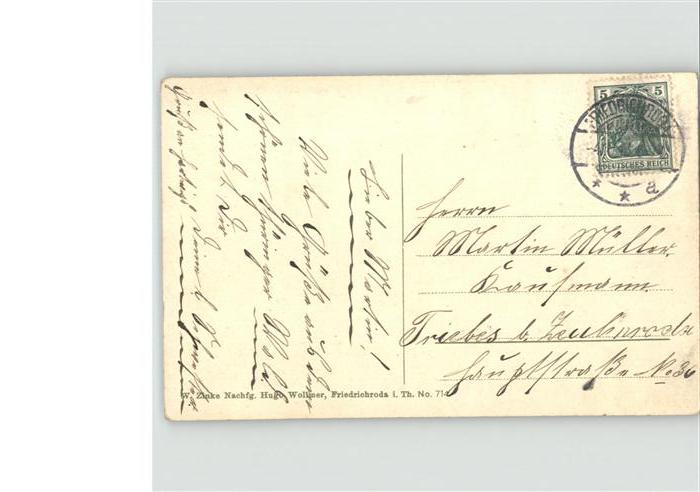 Lieber Martin!
Viele Grüße aus dem
schönen Thüringer Wald
sendet Dir
Deine
5 5
FRIEDRICHRODA
DEUTSCHES REICH
* * a
Herrn
Martin Müller.
Kaufmann.
Triebes b. Zeulenroda
Hauptstraße No. 36
W. Zinke Nachfg. Hugo Wollmer, Friedrichroda i. Th. No. 714